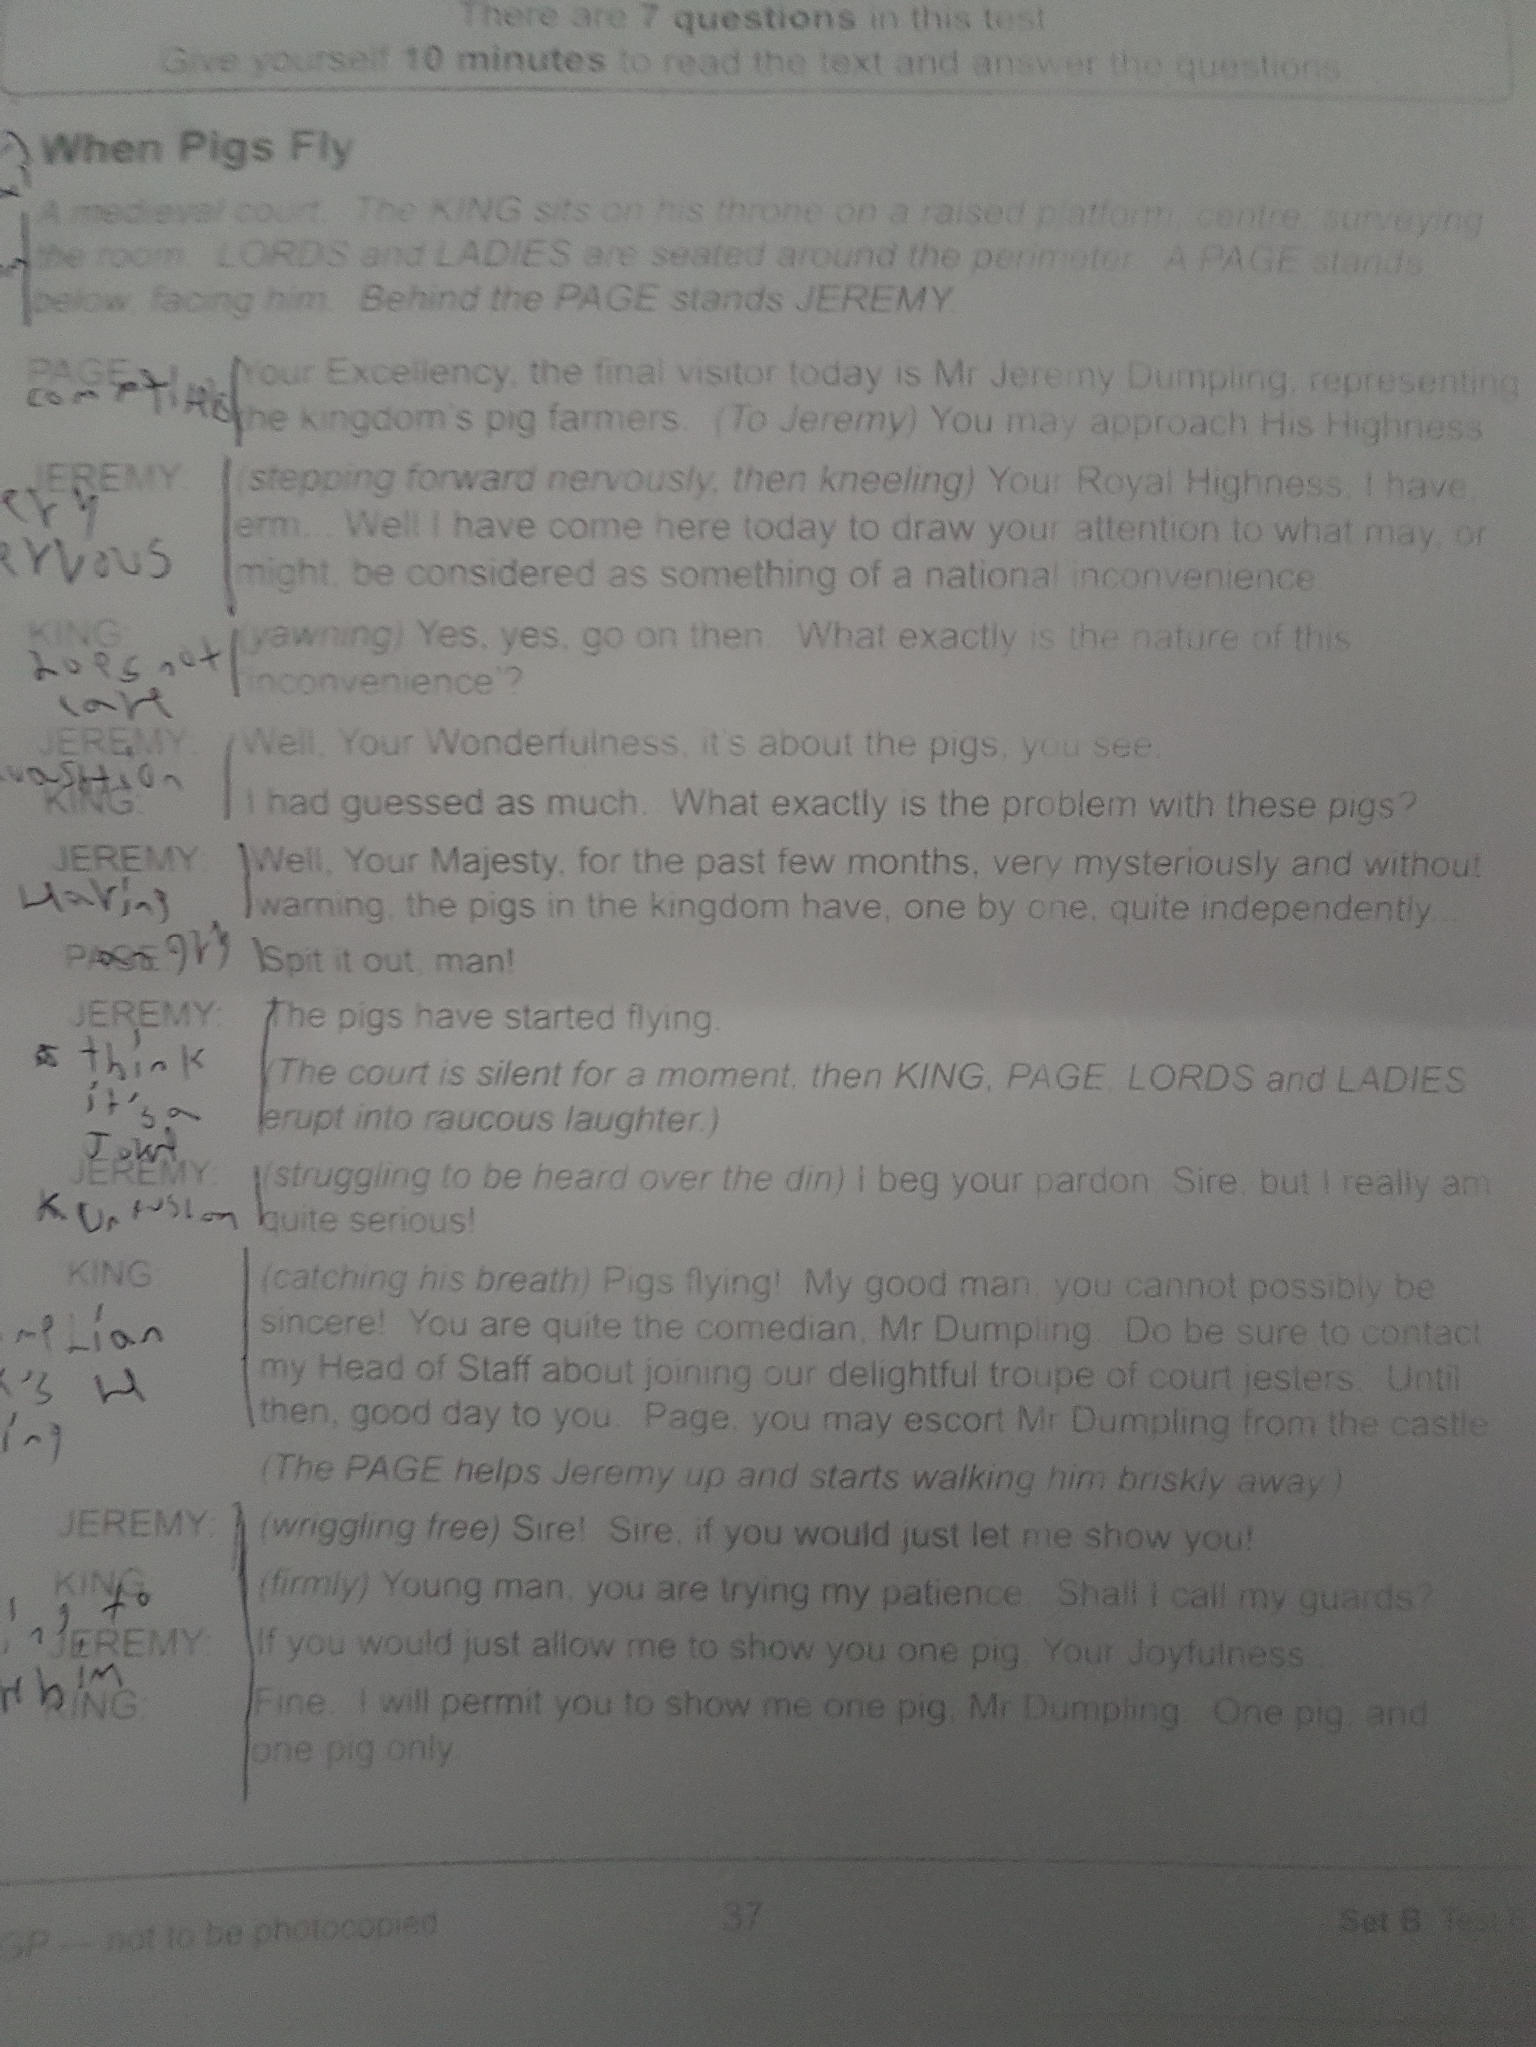 There are 7 questions in this test
Give yourself 10 minutes to read the text and answer the questions.
When Pigs Fly
A medieval court. The KING sits on his throne on a raised platform, centre, surveying
the room. LORDS and LADIES are seated around the perimeter. A PAGE stands
below, facing him. Behind the PAGE stands JEREMY.
PAGE: Your Excellency, the final visitor today is Mr Jeremy Dumpling, representing
the kingdom's pig farmers. (To Jeremy) You may approach His Highness.
JEREMY: (stepping forward nervously, then kneeling) Your Royal Highness, I have,
erm... Well I have come here today to draw your attention to what may, or
ervous
might, be considered as something of a national inconvenience.
KING: (yawning) Yes, yes, go on then. What exactly is the nature of this
does not
'inconvenience'?
care
JEREMY: Well, Your Wonderfulness, it's about the pigs, you see.
KING: I had guessed as much. What exactly is the problem with these pigs?
JEREMY: Well, Your Majesty, for the past few months, very mysteriously and without
warning, the pigs in the kingdom have, one by one, quite independently...
PAGE: Spit it out, man!
JEREMY: The pigs have started flying.
think
(The court is silent for a moment, then KING, PAGE, LORDS and LADIES
it's a
erupt into raucous laughter.)
JEREMY: (struggling to be heard over the din) I beg your pardon, Sire, but I really am
quite serious!
KING: (catching his breath) Pigs flying! My good man, you cannot possibly be
sincere! You are quite the comedian, Mr Dumpling. Do be sure to contact
my Head of Staff about joining our delightful troupe of court jesters. Until
then, good day to you. Page, you may escort Mr Dumpling from the castle.
ing
(The PAGE helps Jeremy up and starts walking him briskly away.)
JEREMY: (wriggling free) Sire! Sire, if you would just let me show you!
KING: (firmly) Young man, you are trying my patience. Shall I call my guards?
to
JEREMY: If you would just allow me to show you one pig, Your Joyfulness...
him
KING: Fine. I will permit you to show me one pig, Mr Dumpling. One pig, and
one pig only.
GP — not to be photocopied
37
Set B: Test